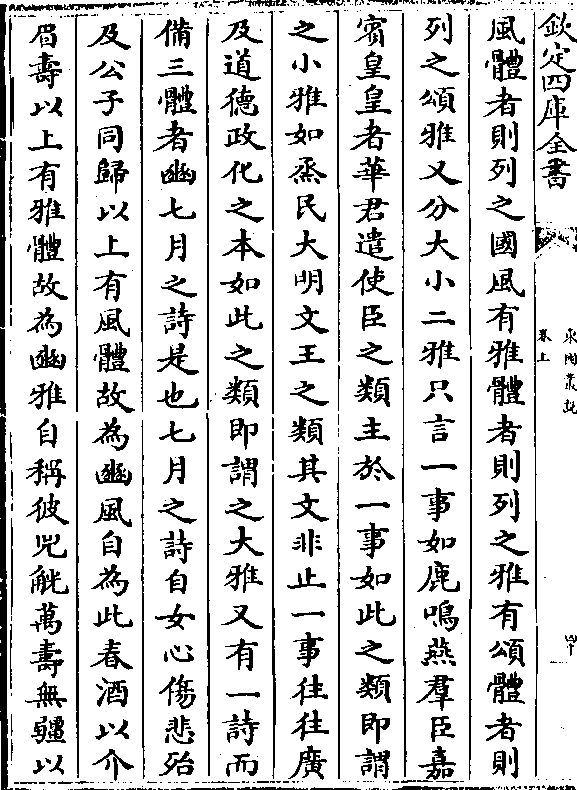 欽定四庫全書
東園叢説
卷上
風體者則列之國風有雅體者則列之雅有頌體者則
列之頌雅又分大小二雅只言一事如鹿鳴燕羣臣嘉
賓皇皇者華君遣使臣之類主於一事如此之類即謂
之小雅如烝民大明文王之類其文非止一事往往廣
及道德政化之本如此之類即謂之大雅又有一詩而
備三體者豳七月之詩是也七月之詩自女心傷悲殆
及公子同歸以上有風體故為豳風自為此春酒以介
眉壽以上有雅體故為豳雅自稱彼兕觥萬壽無疆以